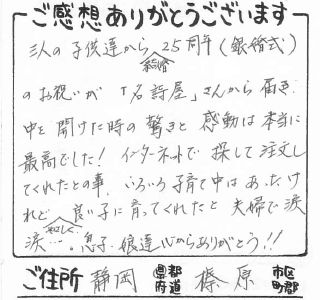 ご感想ありがとうございます
三人の子供達から25周年(銀婚式)
結婚
のお祝いが「名詩屋」さんから届き
中を開けた時の驚きと感動は本当に
最高でした!インターネットで探して注文し
てくれたとの事、いろいろ子育て中はあったけ
れど良い子に育ってくれたと夫婦で涙
涙…息子・娘達心からありがとう!!
ご住所 静岡 都道府県 榛原 市区町郡